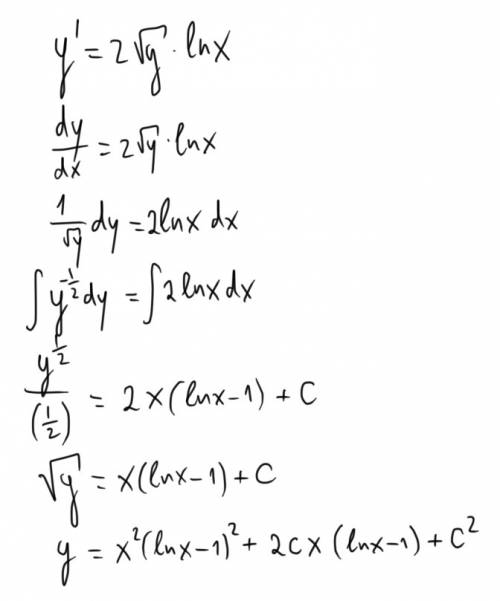 y' = 2√y · lnx
dy/dx = 2√y · lnx
1/√y dy = 2lnx dx
∫ y^(-1/2) dy = ∫ 2lnx dx
y^(1/2)/(1/2) = 2x(lnx-1) + C
√y = x(lnx-1) + C
y = x²(lnx-1)² + 2Cx(lnx-1) + C²